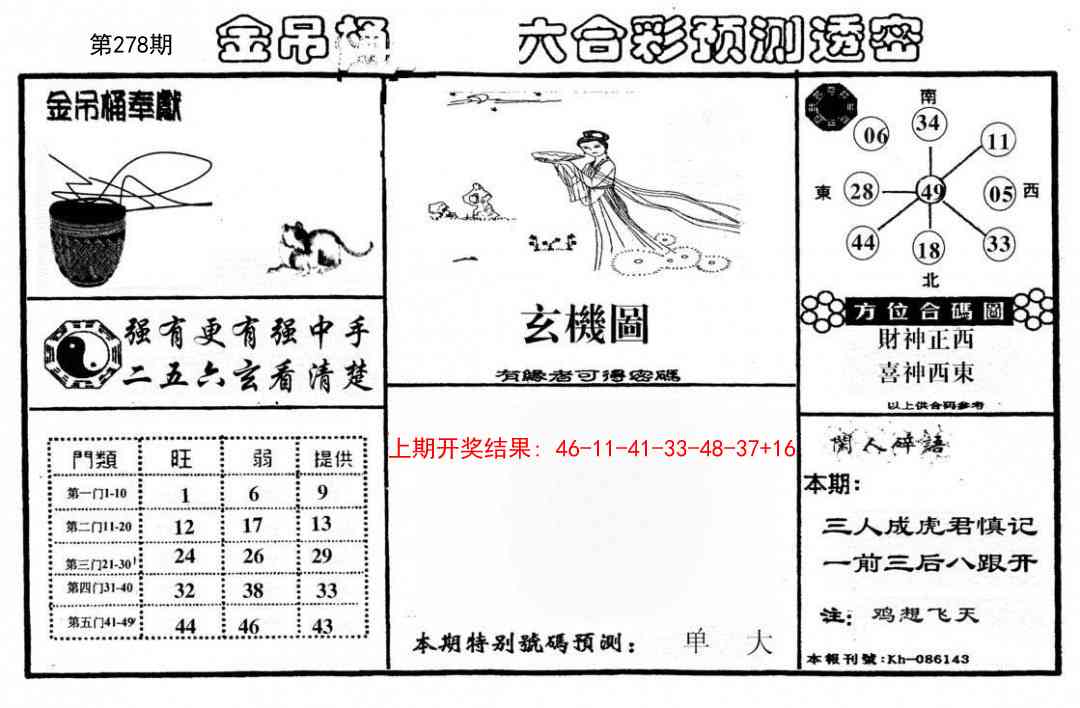 第278期
金吊桶 六合彩预测透密
金吊桶奉獻
强有更有强中手
二五六玄看清楚
門類 旺 弱 提供
第一门1-10 1 6 9
第二门11-20 12 17 13
第三门21-30 24 26 29
第四门31-40 32 38 33
第五门41-49 44 46 43
玄機圖
有緣者可得密碼
上期开奖结果：46-11-41-33-48-37+16
本期特别號碼预测： 单 大
南
06 34 11
東 28 49 05 西
44 18 33
北
方位合碼圖
財神正西
喜神西東
以上供合码参考
閑人碎語
本期：
三人成虎君慎记
一前三后八跟开
注：鸡想飞天
本報刊號:Kh-086143